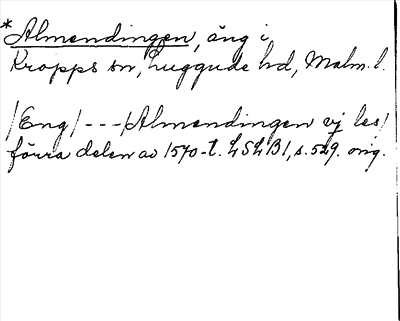 *Almendingen, äng i
Kropps sn, Luggude hd, Malm. l.
/Eng/ --- /Almendingen vj les/
förra delen av 1570-t. LSLB1, s. 529. orig.